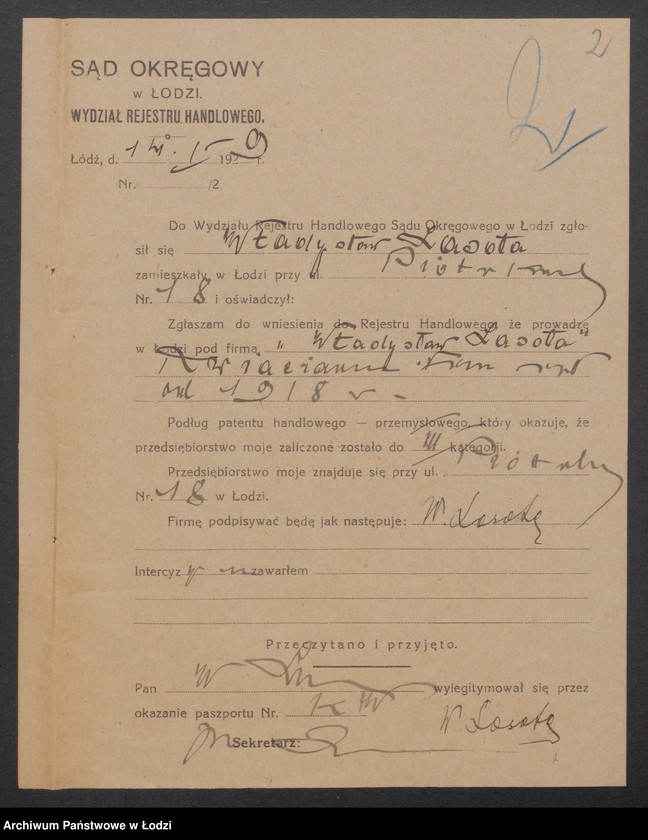 2
SĄD OKRĘGOWY
w ŁODZI.
WYDZIAŁ REJESTRU HANDLOWEGO.
Łódź, d. 1929 r.
Nr. /2
Do Wydziału Rejestru Handlowego Sądu Okręgowego w Łodzi zgło-
sił się Władysław Lasota
zamieszkały w Łodzi przy ul.
Nr. 18 i oświadczył:
Zgłaszam do wniesienia do Rejestru Handlowego, że prowadzę
w Łodzi pod firmą „Władysław Lasota"
od 1918 r -
Podług patentu handlowego — przemysłowego, który okazuje, że
przedsiębiorstwo moje zaliczone zostało do III kategorji.
Przedsiębiorstwo moje znajduje się przy ul.
Nr. 18 w Łodzi.
Firmę podpisywać będę jak następuje: W. Lasota
Intercyz nie zawarłem
Przeczytano i przyjęto.
Pan W wylegitymował się przez
okazanie paszportu Nr.
W Lasota
Sekretarz:
Archiwum Państwowe w Łodzi